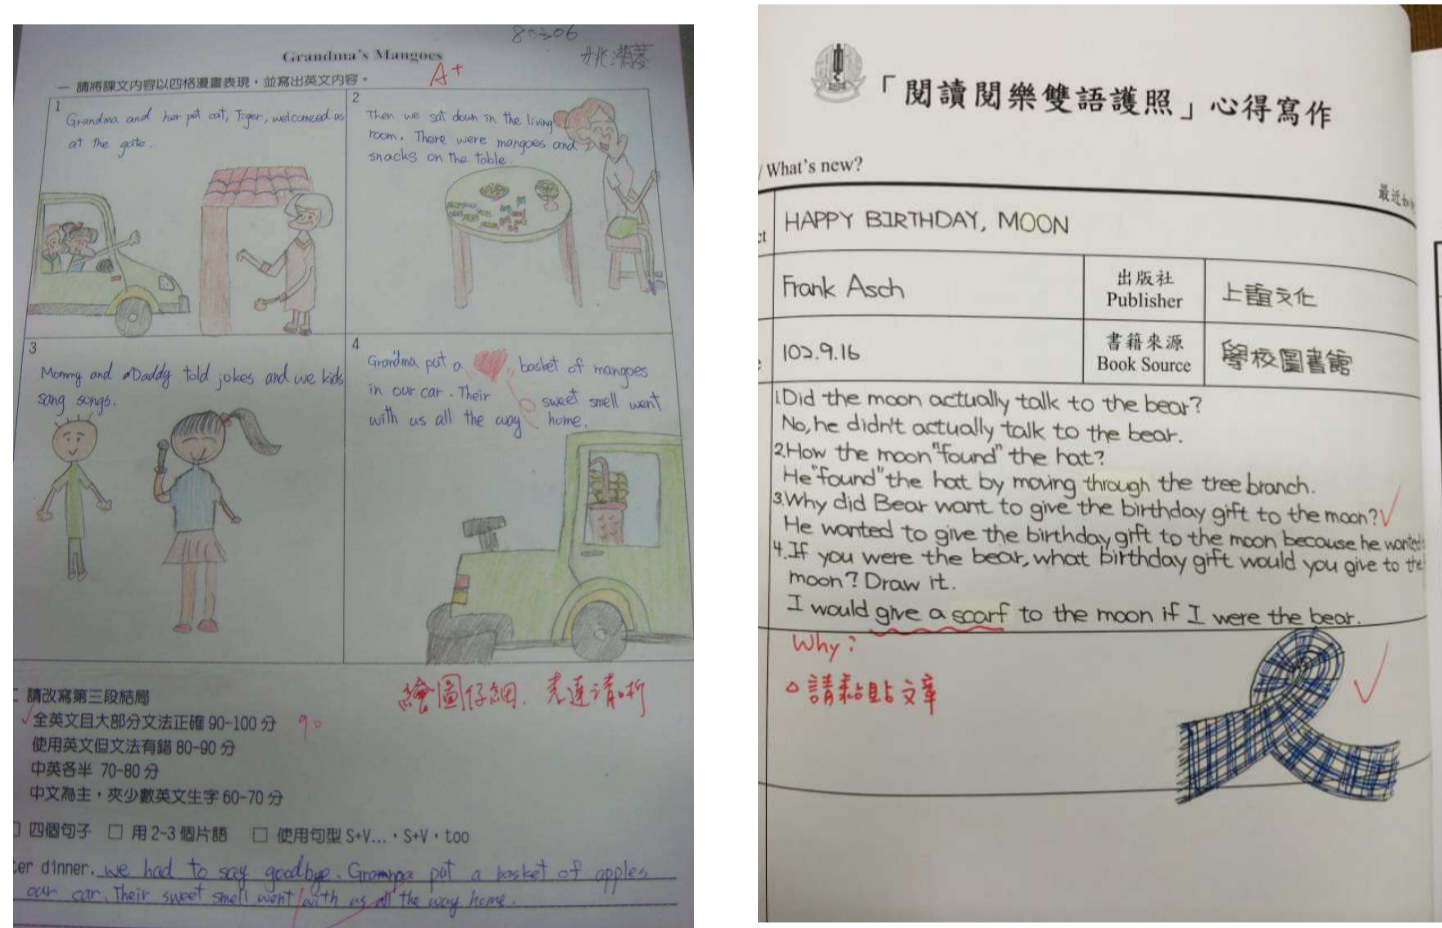 80306
姚
Grandma's Mangoes
A+
一 請將課文內容以四格漫畫表現，並寫出英文內容。
1
Grandma and her pet cat, Tiger, welcomeed us
at the gate.
2
Then we sat down in the living
room. There were mangoes and
snacks on the table.
3
Mommy and Daddy told jokes and we kids
sang songs.
4
Grandma put a basket of mangoes
in our car. Their sweet smell went
with us all the way home.
繪圖仔細．表達清晰
請改寫第三段結局
全英文且大部分文法正確 90-100 分 90
使用英文但文法有錯 80-90 分
中英各半 70-80 分
中文為主，夾少數英文生字 60-70 分
四個句子 □ 用 2-3 個片語 □ 使用句型 S+V...，S+V，too
er dinner, we had to say goodbye. Grampa put a basket of apples
our car. Their sweet smell went with us all the way home.
「閱讀閱樂雙語護照」心得寫作
/ What's new?
最近如
ct HAPPY BIRTHDAY, MOON
Frank Asch 出版社 Publisher 上誼文化
102.9.16 書籍來源 Book Source 學校圖書館
1.Did the moon actually talk to the bear?
No, he didn't actually talk to the bear.
2.How the moon "found" the hat?
He "found" the hat by moving through the tree branch.
3.Why did Bear want to give the birthday gift to the moon?
He wanted to give the birthday gift to the moon because he wanted
4.If you were the bear, what birthday gift would you give to the
moon? Draw it.
I would give a scarf to the moon if I were the bear.
Why?
請黏貼文章